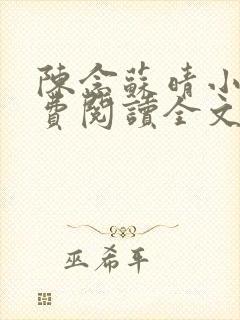 陳念蘇晴小
費閱讀全文
巫希平